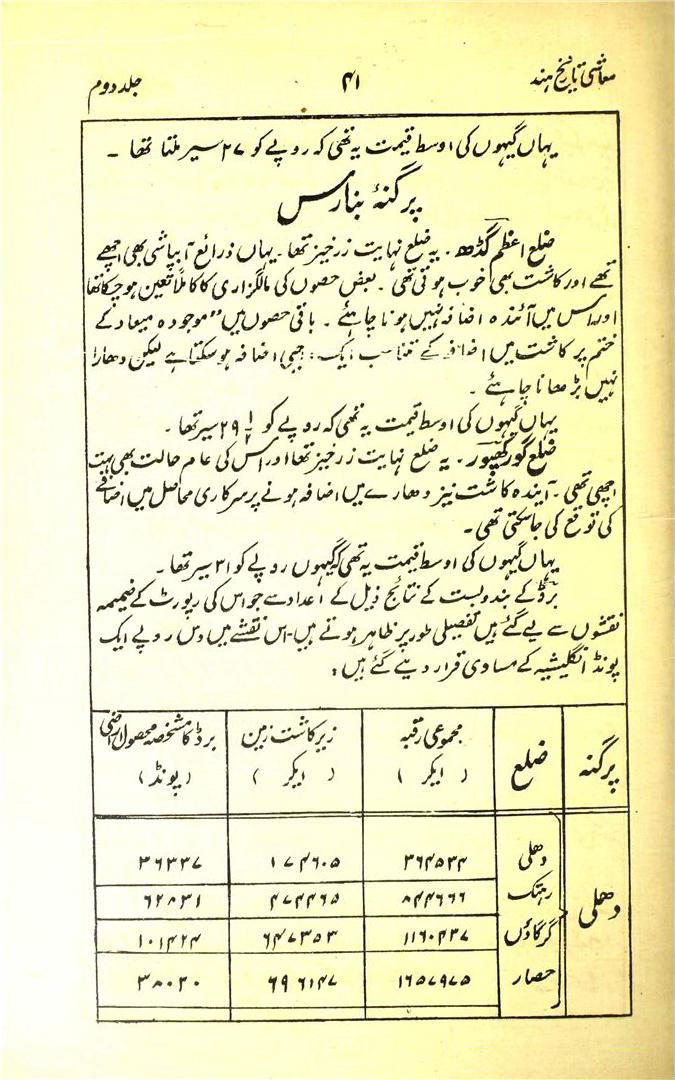 معاشی تاریخ ہند ۴۱ جلد دوم
یہاں گیہوں کی اوسط قیمت یہ تھی کہ روپے کو ۲۷ سیر ملتا تھا ۔
پرگنۂ بنارس
ضلع اعظم گڈھ ۔ یہ ضلع نہایت زرخیز تھا ۔ یہاں ذرائع آبپاشی بھی اچھے
تھے اور کاشت بھی خوب ہوتی تھی ۔ بعض حصوں کی مالگزاری کا کاملاً تعین ہوچکا تھا
اور اس میں آئندہ اضافہ نہیں ہونا چاہئے ۔ باقی حصوں میں "موجودہ میعاد کے
ختم پر کاشت میں اضافہ کے تناسب ایک جبی اضافہ ہوسکتا ہے لیکن دھارا
نہیں بڑھانا چاہئے ۔
یہاں گیہوں کی اوسط قیمت یہ تھی کہ روپے کو ۲۹ ۱/۲ سیر تھا ۔
ضلع گورکھپور ۔ یہ ضلع نہایت زرخیز تھا اور اس کی عام حالت بھی بہت
اچھی تھی ۔ آیندہ کاشت نیز دھارے میں اضافہ ہونے پر سرکاری محاصل میں اضافے
کی توقع کی جاسکتی تھی ۔
یہاں گیہوں کی اوسط قیمت یہ تھی کہ گیہوں روپے کو ۳۱ سیر تھا ۔
برڈ کے بندوبست کے نتائج ذیل کے اعداد سے جو اس کی رپورٹ کے ضمیمہ
نقشوں سے لیے گئے ہیں تفصیلی طور پر ظاہر ہوتے ہیں ۔ اس نقشے میں دس روپے ایک
پونڈ انگلیشیہ کے مساوی قرار دیے گئے ہیں :
پرگنہ ضلع مجموعی رقبہ زیر کاشت زمین برڈ کا مشخصہ محصول اراضی
( ایکر ) ( ایکر ) ( پونڈ )
دھلی
دھلی ۳۶۴۵۳۴ ۱۷۴۶۰۵ ۳۶۳۳۷
رہتک ۸۴۴۶۶۶ ۴۷۴۴۶۵ ۶۲۸۳۱
گرگاؤں ۱۱۶۰۴۳۷ ۶۴۷۳۵۳ ۱۰۱۴۲۴
حصار ۱۶۵۷۹۷۵ ۶۹۶۱۴۷ ۳۸۰۲۰